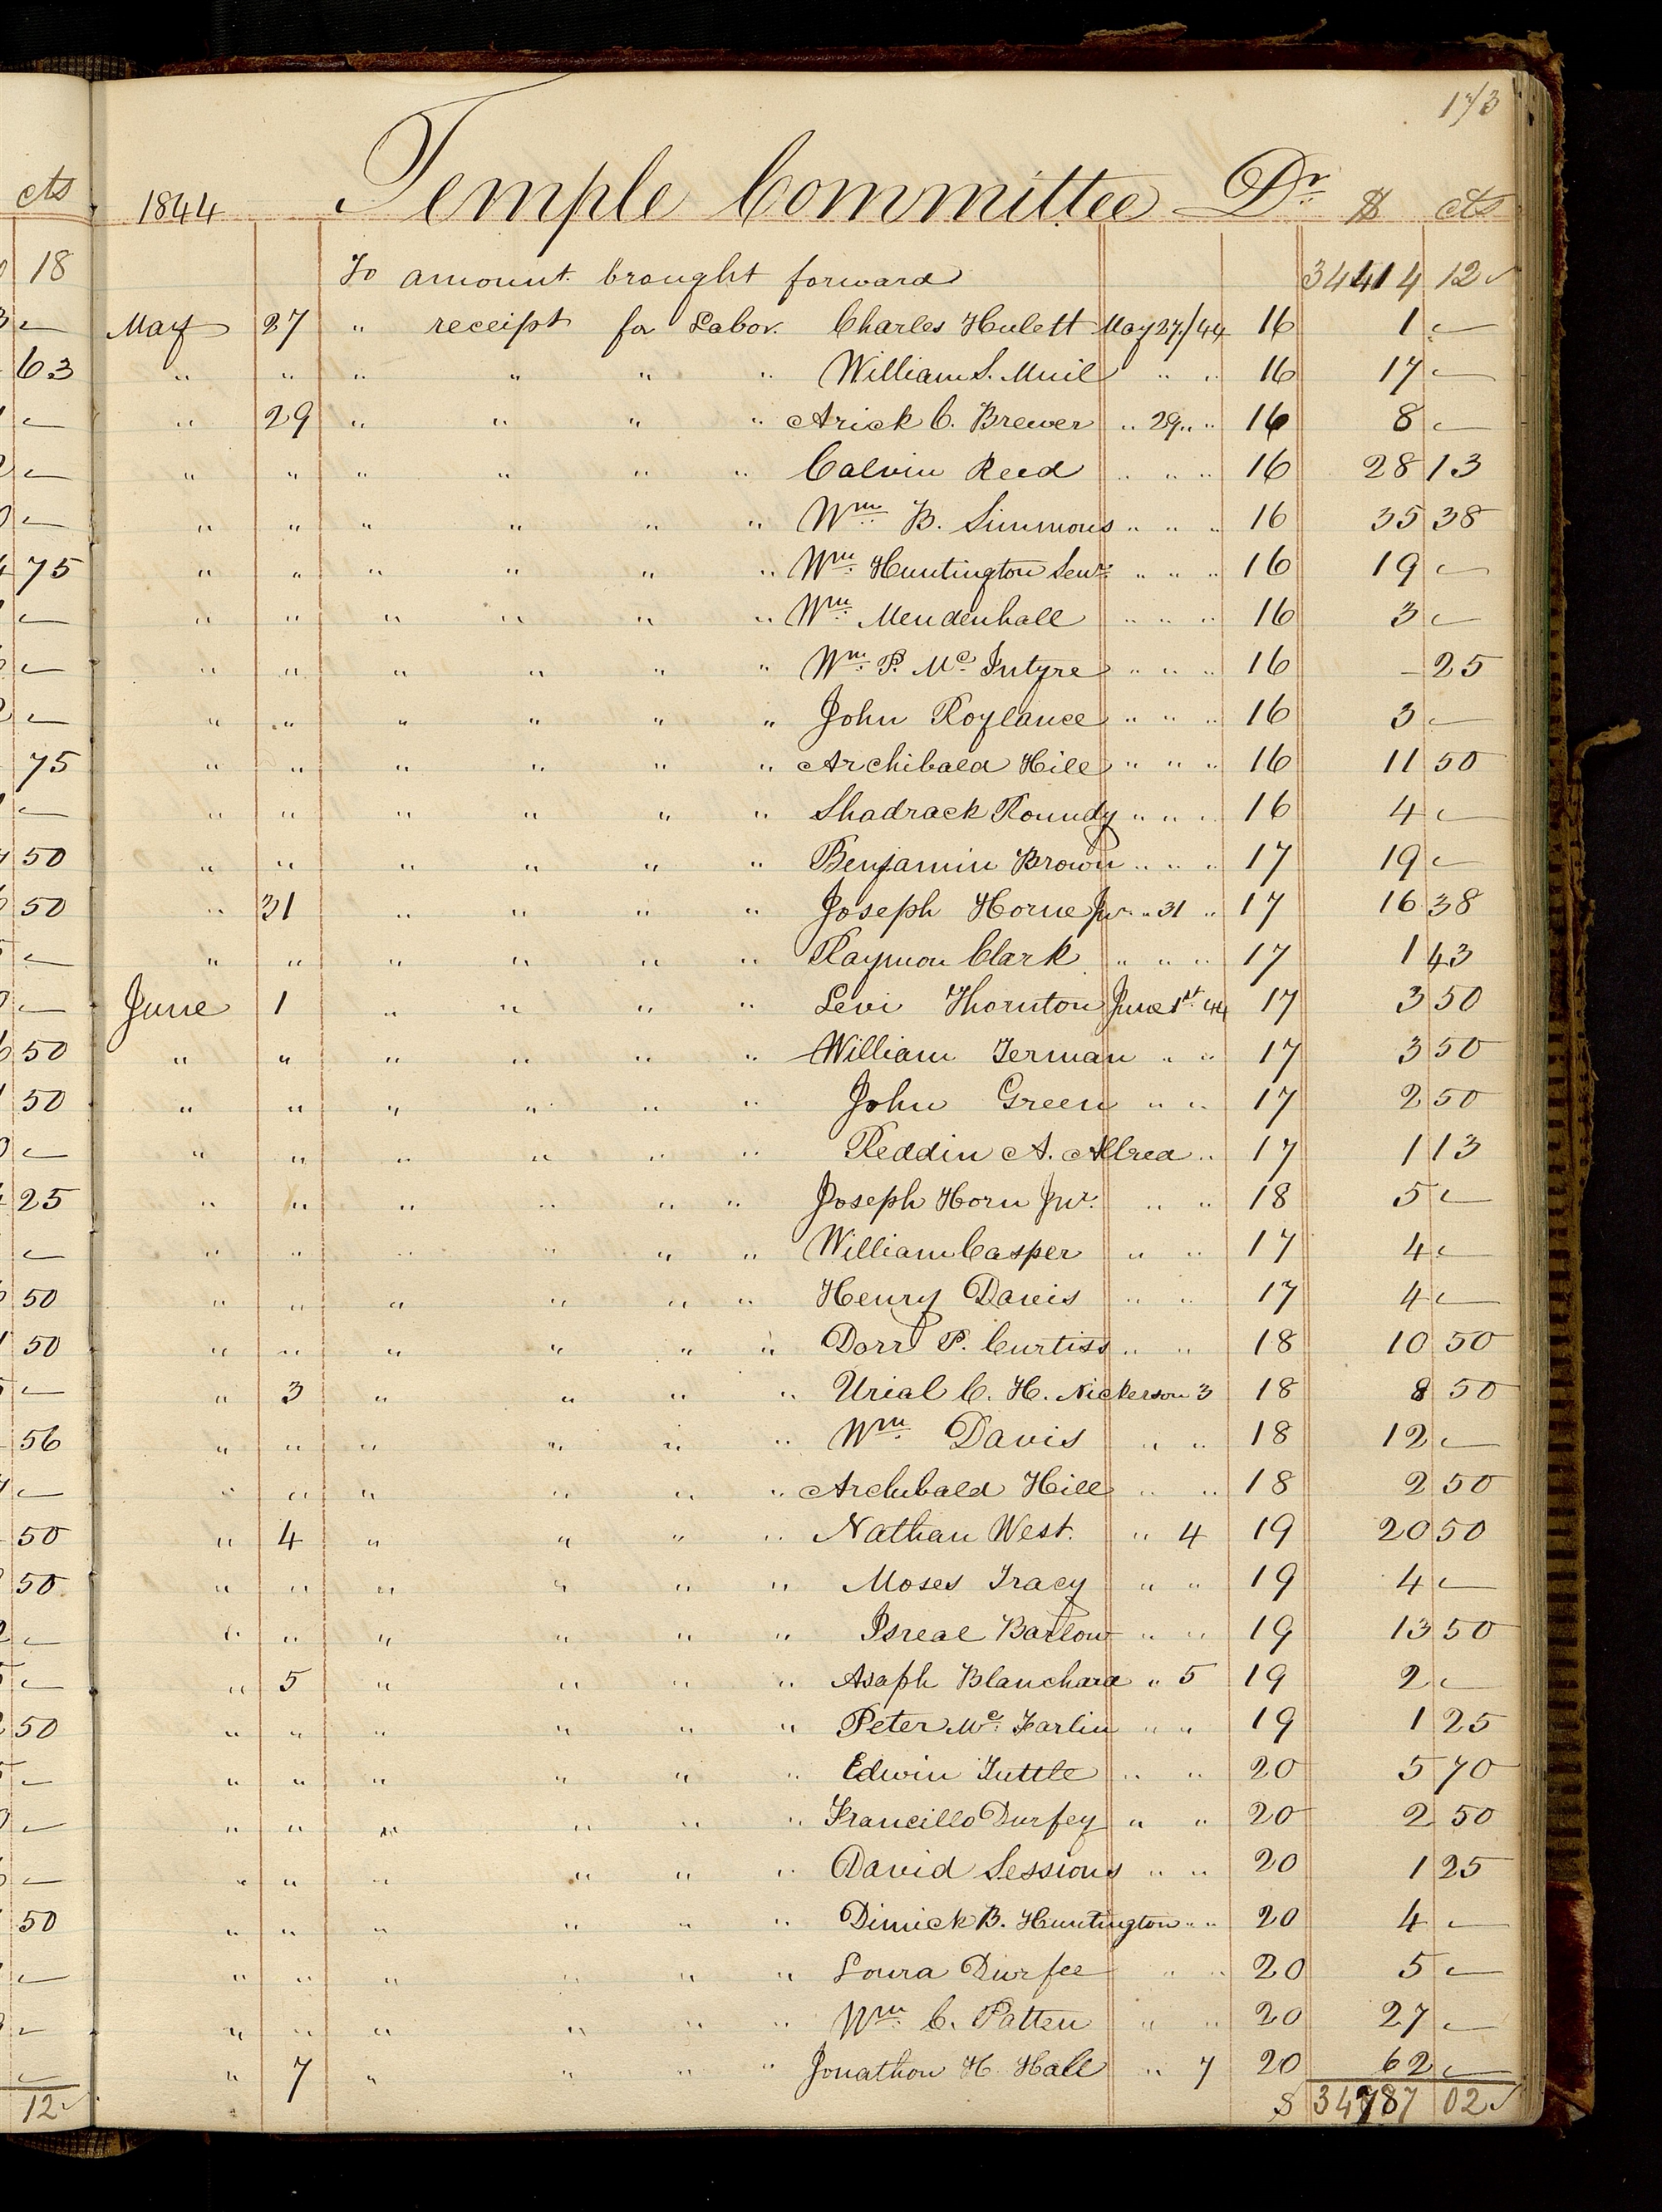 173
1844 Temple Committee Dr. $ cts
To amount brought forward 34414 12
May 27 " receipt for Labor. Charles Hulett May 27/44 16 1 —
" " " " " " William S. Muil " " 16 17 —
" 29 " " " " Arick C. Brewer " 29 " " 16 8 —
" " " " " " Calvin Reed " " " 16 28 13
" " " " " " Wm B. Simmons " " " 16 35 38
" " " " " " Wm Huntington Senr. " " " 16 19 —
" " " " " " Wm Mendenhall " " " 16 3 —
" " " " " " Wm P. Mc Intyre " " " 16 – 25
" " " " " " John Roylance " " " 16 3 —
" " " " " " Archibald Hill " " " 16 11 50
" " " " " " Shadrack Roundy " " " 16 4 —
" " " " " " Benjamin Brown " " " 17 19 —
" 31 " " " " Joseph Horne Jur. " 31 " 17 16 38
" " " " " " Raymon Clark " " " 17 1 43
June 1 " " " " Levi Thornton June 1st 44 17 3 50
" " " " " " William Terman " " 17 3 50
" " " " " " John Green " " 17 2 50
" " " " " " Reddin A. Allred " 17 1 13
" " " " " " Joseph Horn Jur. " " 18 5 —
" " " " " " William Casper " " 17 4 —
" " " " " " Henry Davis " " 17 4 —
" " " " " " Dorr P. Curtiss " " 18 10 50
" 3 " " " " Urial C. H. Nickerson 3 18 8 50
" " " " " " Wm Davis " " 18 12 —
" " " " " " Archibald Hill " " 18 2 50
" 4 " " " " Nathan West. " 4 19 20 50
" " " " " " Moses Tracy " " 19 4 —
" " " " " " Isreal Barlow " " 19 13 50
" 5 " " " " Asaph Blanchard " 5 19 2 —
" " " " " " Peter Mc. Farlin " " 19 1 25
" " " " " " Edwin Tuttle " " 20 5 70
" " " " " " Francillo Durfey " " 20 2 50
" " " " " " David Sessions " " 20 1 25
" " " " " " Dimick B. Huntington " " 20 4 —
" " " " " " Loura Durfee " " 20 5 —
" " " " " " Wm C. Patten " " 20 27 —
" 7 " " " " Jonathon H. Hall " 7 20 62 —
$ 34787 02